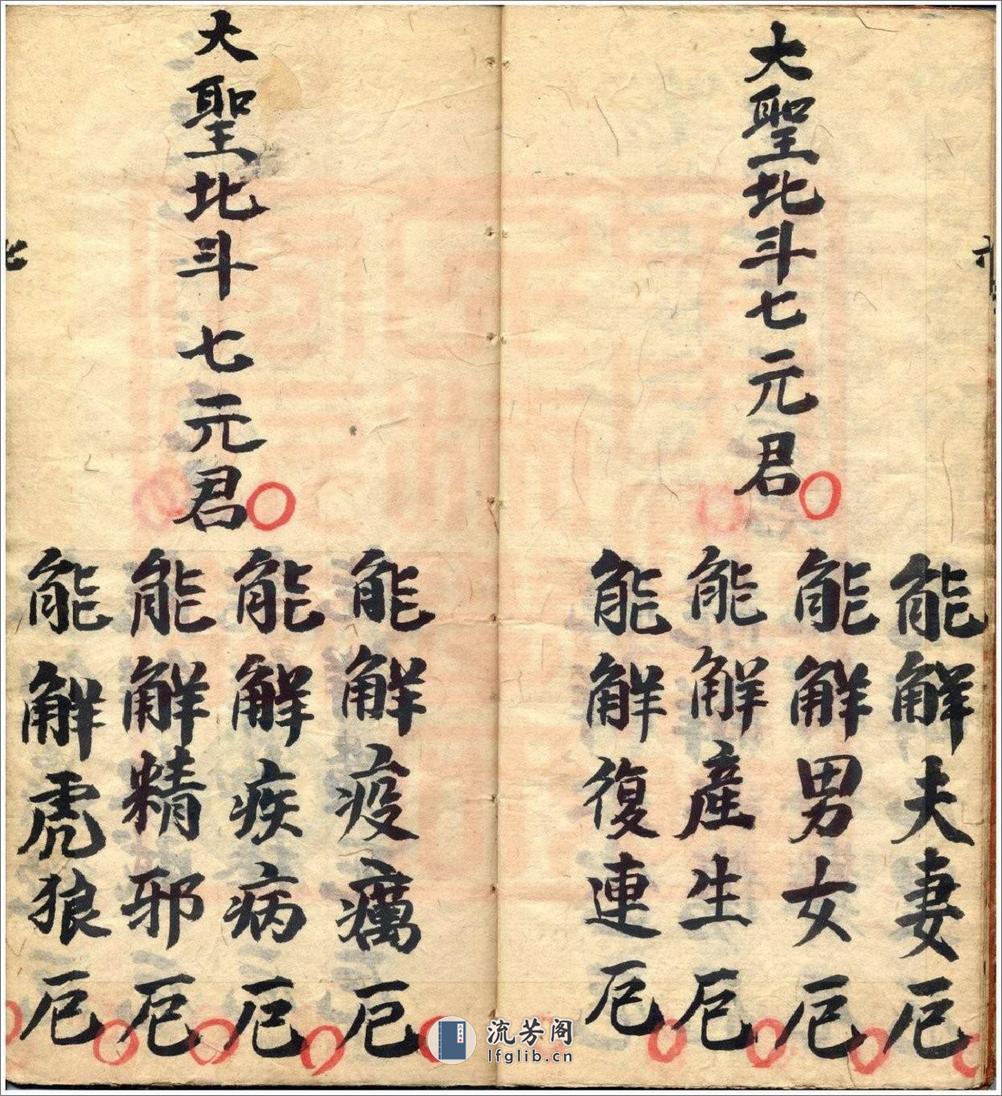 大聖北斗七元君
能觧夫妻厄
能觧男女厄
能觧產生厄
能觧復連厄
大聖北斗七元君
能觧疫癘厄
能觧疾病厄
能觧精邪厄
能觧虎狼厄
流芳阁
lfglib.cn